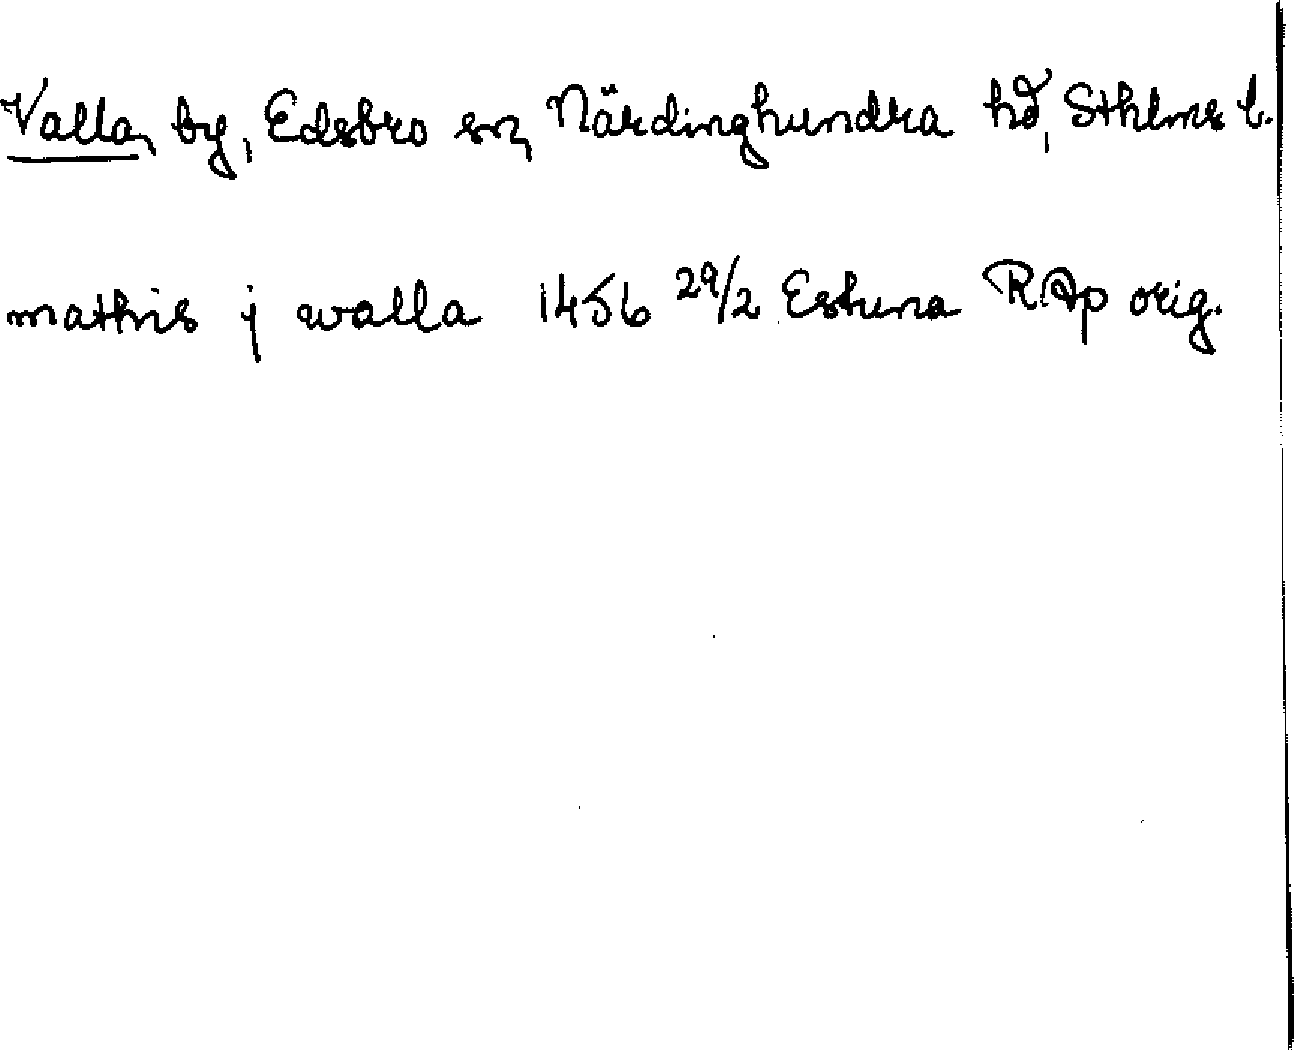 Valla, by, Edsbro sn, Närdinghundra hd, Sthlms l.
mathis j walla 1456 29/2 Eskuna RAp orig.